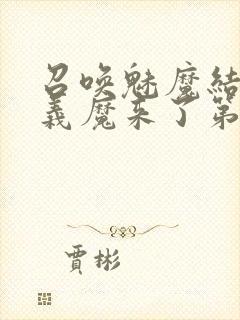 召唤魅魔结
义魔来了第
贾彬